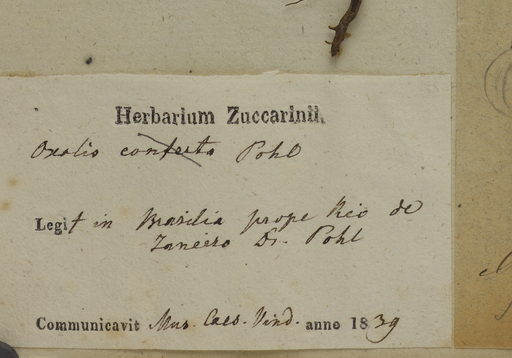 Herbarium Zuccarinii.
Oxalis conferta Pohl
Legit in Brasilia prope Rio de
Janeiro Dr. Pohl
Communicavit Mus. Caes. Vind. anno 1839